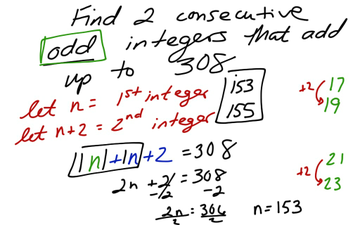 Find 2 consecutive
odd integers that add
up to 308
let n = 1st integer 153
let n+2 = 2nd integer 155
+2 17
19
1n + 1n + 2 = 308
2n + 2 = 308
-2 -2
+2 21
23
2n = 306
2 2
n = 153